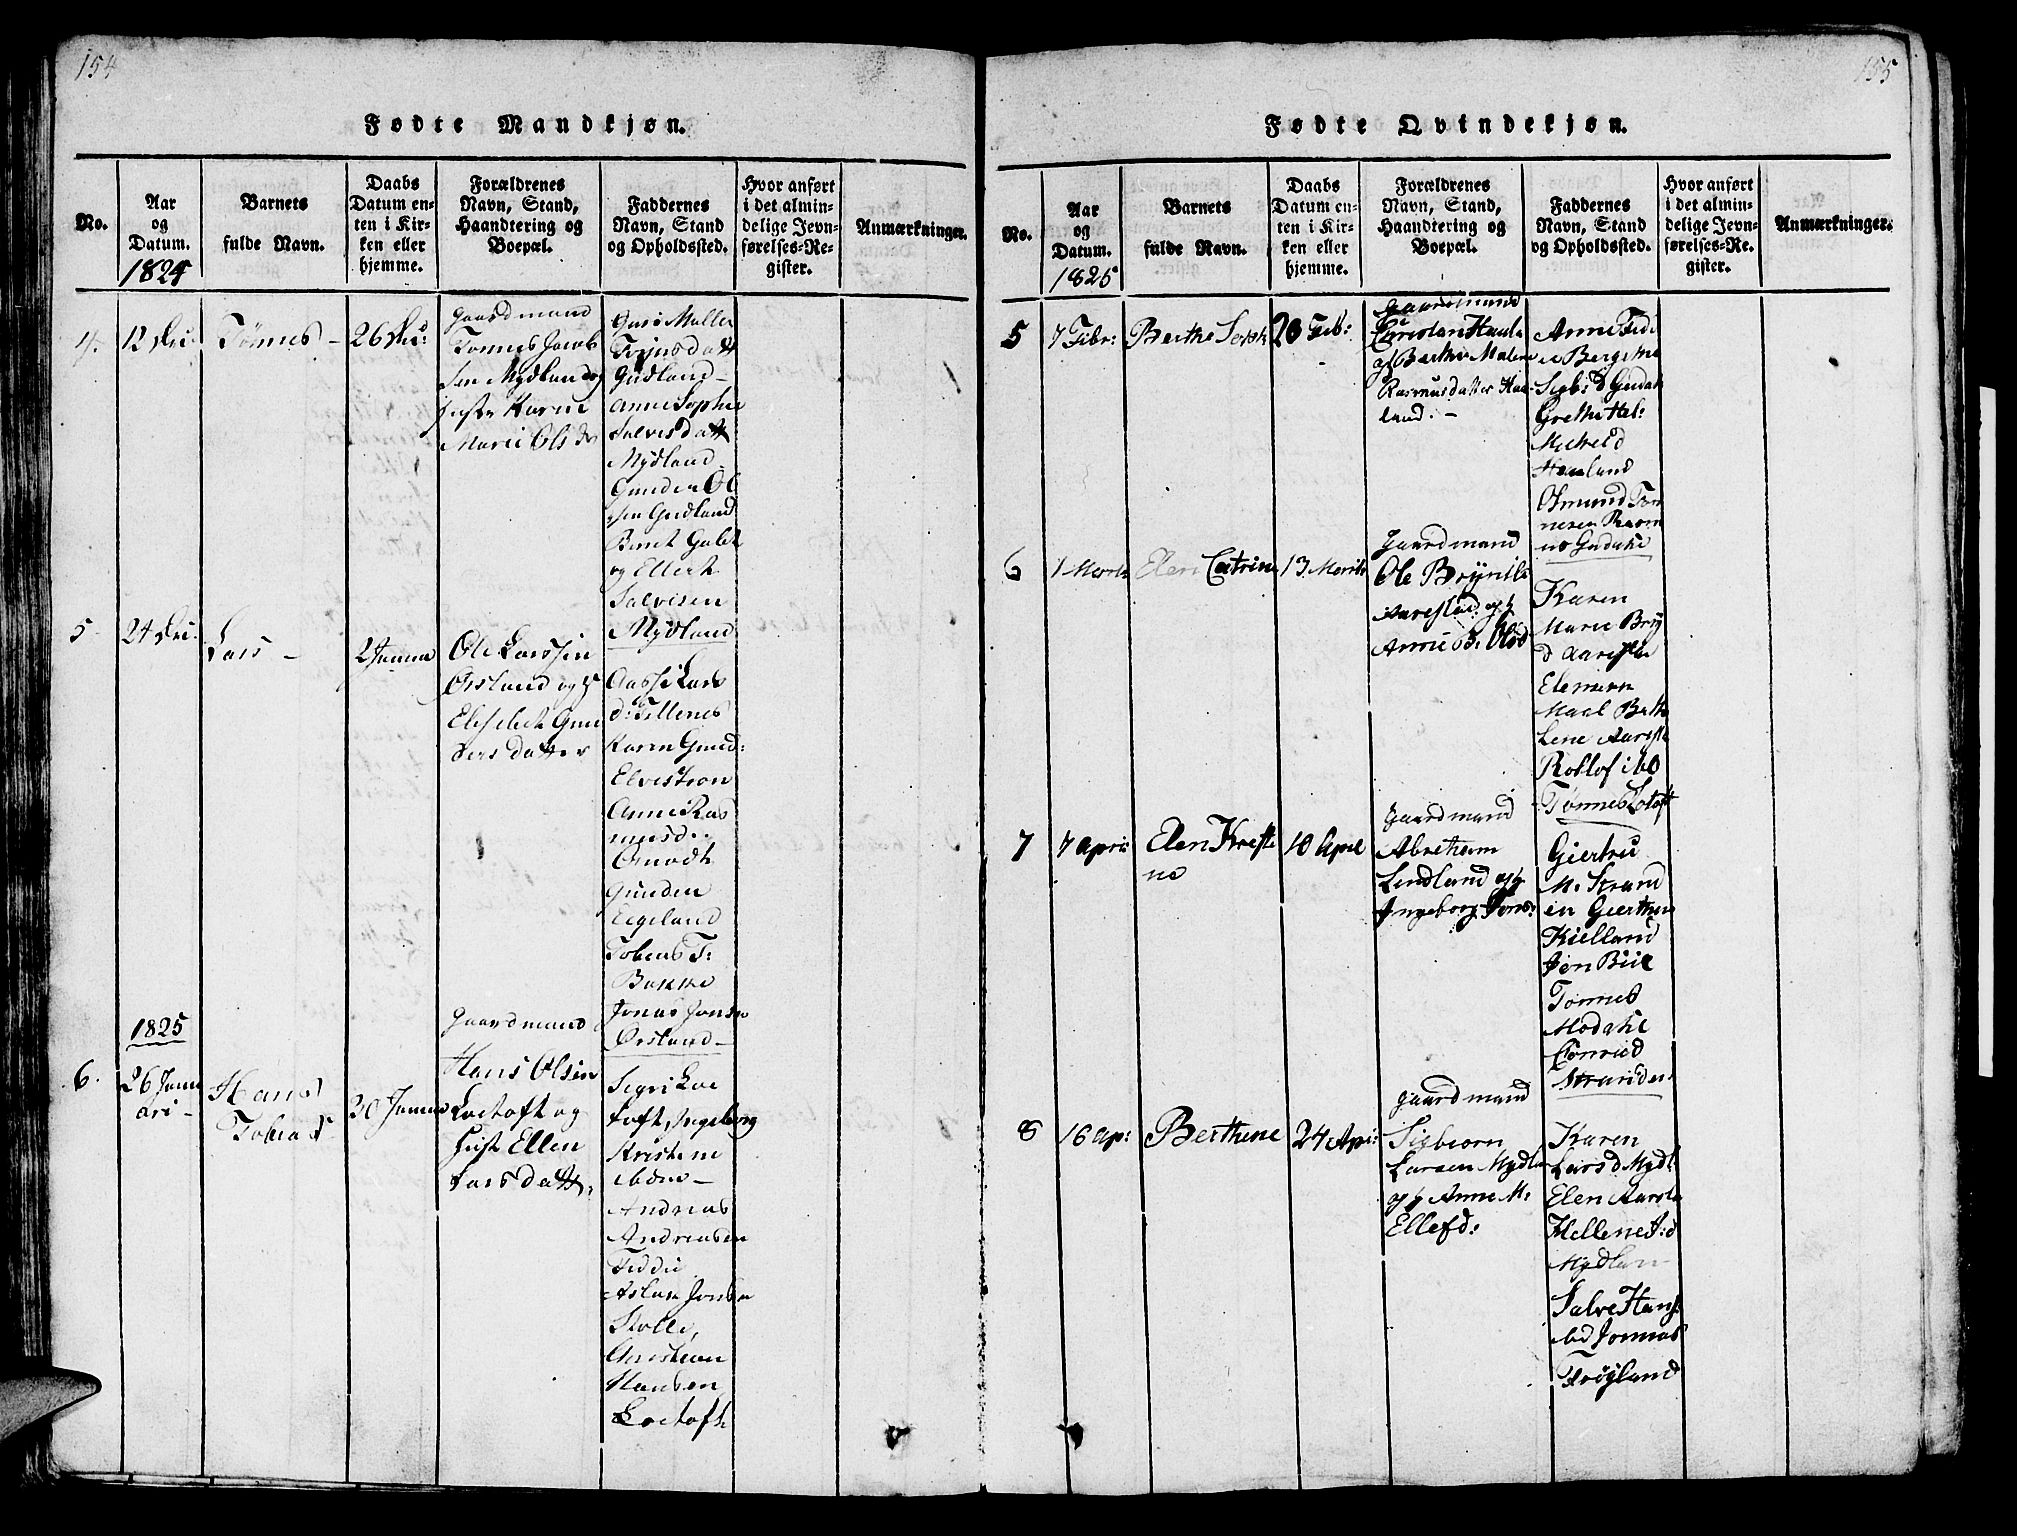 154
Fødte Mandkjøn.
No.
Aar
og
Datum.
1824
Barnets
fulde Navn.
Daabs
Datum en-
ten i Kir-
ken eller
hjemme.
Forældrenes
Navn, Stand,
Haandtering og
Boepæl.
Faddernes
Navn, Stand
og Opholdssted.
Hvor anført
i det almin-
delige Jevn-
førelses-Re-
gister.
Anmærkninger.
4.
12 Dec:
Tønnes -
26 Dec:
gaardmand
Tønnes Jacob
sen Mydland og
Karen
Marie Ols dr
Malle
datt
Gudland -
Anne Sophie
Salvesdatt
Mydland
Gunder Ol
sen Gudland
Berét
og Ellert
Salvesen
Mydland
5
24 Dec.
Lars -
2 Janua
Ole Larssen
Ørsland og h
Elisebeth Gun
ders datter
Aasse Lars
d: Tellenes
Karen Gund:
Elvestrøn
Anne Ras
musd..
Gunder
Eegeland
Tobias T:
Bakke
Jonas Jonsen
Ørsland -
1825
6.
26 Janu
ari -
Hans
Tobias
30 Janua
gaardmand
Hans Olsen
Loetoft og
hust Ellen
Lars datt:
Segri Loe
toft, Ingeborg
Kristine
Andreas
Andreasen
Fedde
Aslak Jonsen
Stolle,
Christian
Hansen
Loetoft
155
Fødte Qvindekjøn.
No.
Aar
og
Datum.
1825
Barnets
fulde Navn.
Daabs
Datum en-
ten i Kir-
ken eller
hjemme.
Forældrenes
Navn, Stand,
Haandtering og
Boepæl.
Faddernes
Navn, Stand
og Opholdssted.
Hvor anført
i det almin-
delige Jevn-
førelses-Re-
gister.
Anmærkninger.
5
7 Febr:
Berthe
20 Feb:
gaardmand
Christen Haala
og Berthe Malene
Rasmusdatter Haa-
land. -
Anne Fedi
Sigb: d Gudal
Grethe Hel:
Mickels d
Haaland
Osmund Tøn
nesen Rasm
us Gudahl
6
1 Marts
Elen Catrine
13 Marts
gaardmand
Ole Bryntels
Aarestad og h
Anne B. Ols d
Karen
Marie Bry
d Aaresta
Elen
Mael Berth
Lene Aarest
Rollof ibd
Tønnes Lotoft
7
7 April
Elen Kreste
ne
10 Apri
gaardmand
Abraham
Lindland og h
Ingeborg Jons:
Giertru
M. Strand
en Giertru
Kielland
Jon Bue
Tønnes
Modahl
Conrad
Stranden
8
16 Ap:
Berthene
24 Apr:
gaardmand
Sigbiørn
Larsen Mydla
og h Anne M:
Ellefd:
Karen
Larsd Mydl
Elen Aarsta
Hellene A: d
Mydlan
Salve Hans
ibd Jonnas
Frøyland